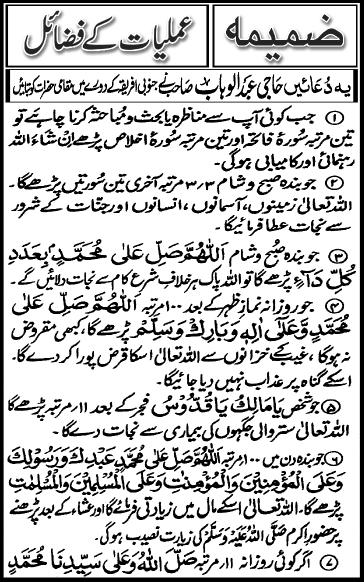 ضمیمہ عملیات کے فضائل
یہ دُعائیں حاجی عبدالوہاب صاحبؒ نے جنوبی افریقہ کے دورے میں مقامی حضرات کو بتائیں
① جب کوئی آپ سے مناظرہ یا بحث و مُباحثہ کرنا چاہے تو
تین مرتبہ سُورۂ فاتحہ اور تین مرتبہ سُورۂ اخلاص پڑھے اِن شاءَ اللہ
راہنمائی اور کامیابی ہوگی۔
② جو بندہ صبح و شام ۳،۳ مرتبہ آخری تین سُورتیں پڑھے گا۔
اللہ تعالیٰ زمینوں، آسمانوں، انسانوں اور جنّات کے شرور
سے نجات عطا فرمائیگا۔
③ جو بندہ صُبح و شام اَللّٰهُمَّ صَلِّ عَلٰى مُحَمَّدٍ بِعَدَدِ
كُلِّ دَآءٍ پڑھے گا تو اللہ پاک ہر خلافِ شرع کام سے نجات دلائیں گے۔
④ جو روزانہ نمازِ ظہر کے بعد ۱۰۰ مرتبہ اَللّٰهُمَّ صَلِّ عَلٰى
مُحَمَّدٍ وَّعَلٰى اٰلِهٖ وَبَارِكْ وَسَلِّمْ پڑھے گا، کبھی مقروض
نہ ہوگا، غیب کے خزانوں سے اللہ تعالیٰ اسکا قرض پورا کر دے گا۔
اسکے گناہ پر عذاب نہیں دیا جائیگا۔
⑤ جو شخص يَا مَالِكُ يَا قُدُّوْسُ فجر کے بعد ۱۱ مرتبہ پڑھے گا
اللہ تعالیٰ ستر والی جگہوں کی بیماری سے نجات دے گا۔
⑥ جو بندہ دن میں ۱۰۰ مرتبہ اَللّٰهُمَّ صَلِّ عَلٰى مُحَمَّدٍ عَبْدِكَ وَرَسُوْلِكَ
وَعَلَى الْمُؤْمِنِيْنَ وَالْمُؤْمِنٰتِ وَعَلَى الْمُسْلِمِيْنَ وَالْمُسْلِمٰتِ
پڑھے گا۔ اللہ تعالیٰ اسکے مال میں زیادتی فرمائے گا اور عشاء کے بعد پڑھنے
پر حضورِ اکرم صَلَّی اللہُ عَلَیْہِ وَسَلَّمَ کی زیارت نصیب ہو گی۔
⑦ اگر کوئی روزانہ ۱۱ مرتبہ صَلَّى اللّٰهُ وَعَلٰى سَيِّدِنَا مُحَمَّدٍ